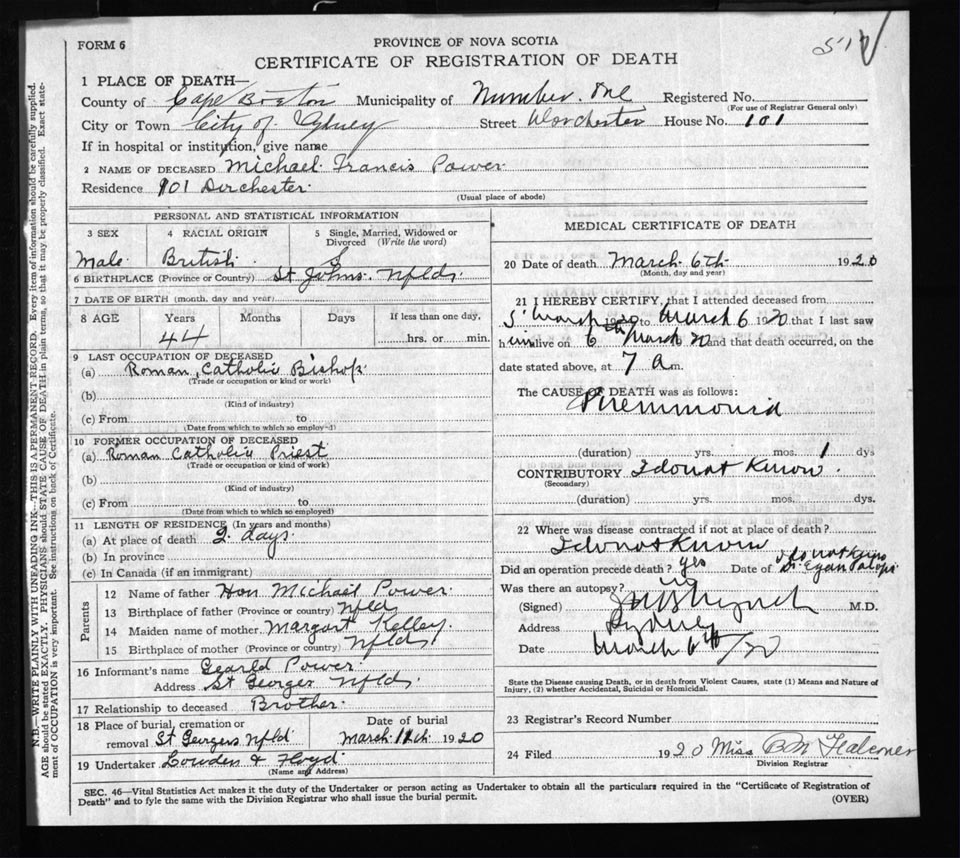 FORM 6
PROVINCE OF NOVA SCOTIA
CERTIFICATE OF REGISTRATION OF DEATH
1 PLACE OF DEATH—
County of Cape Breton Municipality of Number One Registered No.
(For use of Registrar General only)
City or Town City of Sydney Street Dorchester House No. 101
If in hospital or institution, give name
2 NAME OF DECEASED Michael Francis Power
Residence 101 Dorchester
(Usual place of abode)
PERSONAL AND STATISTICAL INFORMATION
3 SEX 4 RACIAL ORIGIN 5 Single, Married, Widowed or Divorced (Write the word)
Male British S
6 BIRTHPLACE (Province or Country) St Johns Nflds
7 DATE OF BIRTH (month, day and year)
8 AGE Years Months Days If less than one day,
44 hrs. or min.
9 LAST OCCUPATION OF DECEASED
(a) Roman Catholic Bishop
(Trade or occupation or kind or work)
(b)
(Kind of industry)
(c) From to
(Date from which to which so employ-d)
10 FORMER OCCUPATION OF DECEASED
(a) Roman Catholic Priest
(Trade or occupation or kind of work)
(b)
(Kind of industry)
(c) From to
(Date from which to which so employed)
11 LENGTH OF RESIDENCE (In years and months)
(a) At place of death 2 days
(b) In province
(c) In Canada (if an immigrant)
Parents
12 Name of father Hon Michael Power
13 Birthplace of father (Province or country) Nflds
14 Maiden name of mother Margart Kelley
15 Birthplace of mother (Province or country) Nflds
16 Informant's name Gearld Power
Address St Georges Nflds
17 Relationship to deceased Brother
18 Place of burial, cremation or removal St Georgers Nfld
Date of burial
March 11th 1920
19 Undertaker Lowden & Floyd
(Name and Address)
MEDICAL CERTIFICATE OF DEATH
20 Date of death March 6th 1920
(Month, day and year)
21 I HEREBY CERTIFY, that I attended deceased from
5 March 1920 to March 6 1920 that I last saw
him alive on 6th March 20 and that death occurred, on the
date stated above, at 7 a m.
The CAUSE OF DEATH was as follows:
Pneumonia
(duration) yrs. mos. 1 dys
CONTRIBUTORY I do not know
(Secondary)
(duration) yrs. mos. dys.
22 Where was disease contracted if not at place of death?
I do not know
Did an operation precede death? yes Date of I do not know
Dr. Egan
Was there an autopsy? no
(Signed) M.D.
Address Sydney
Date March 6th /20
State the Disease causing Death, or in death from Violent Causes, state (1) Means and Nature of
Injury, (2) whether Accidental, Suicidal or Homicidal.
23 Registrar's Record Number
24 Filed 1920 Miss
Division Registrar
SEC. 46—Vital Statistics Act makes it the duty of the Undertaker or person acting as Undertaker to obtain all the particulars required in the "Certificate of Registration of
Death" and to fyle the same with the Division Registrar who shall issue the burial permit.
(OVER)
N.B.—WRITE PLAINLY WITH UNFADING INK—THIS IS A PERMANENT RECORD. Every item of information should be carefully supplied.
AGE should be stated EXACTLY. PHYSICIANS should STATE CAUSE OF DEATH in plain terms, so that it may be properly classified. Exact statement of OCCUPATION is very important. See instructions on back of Certificate.